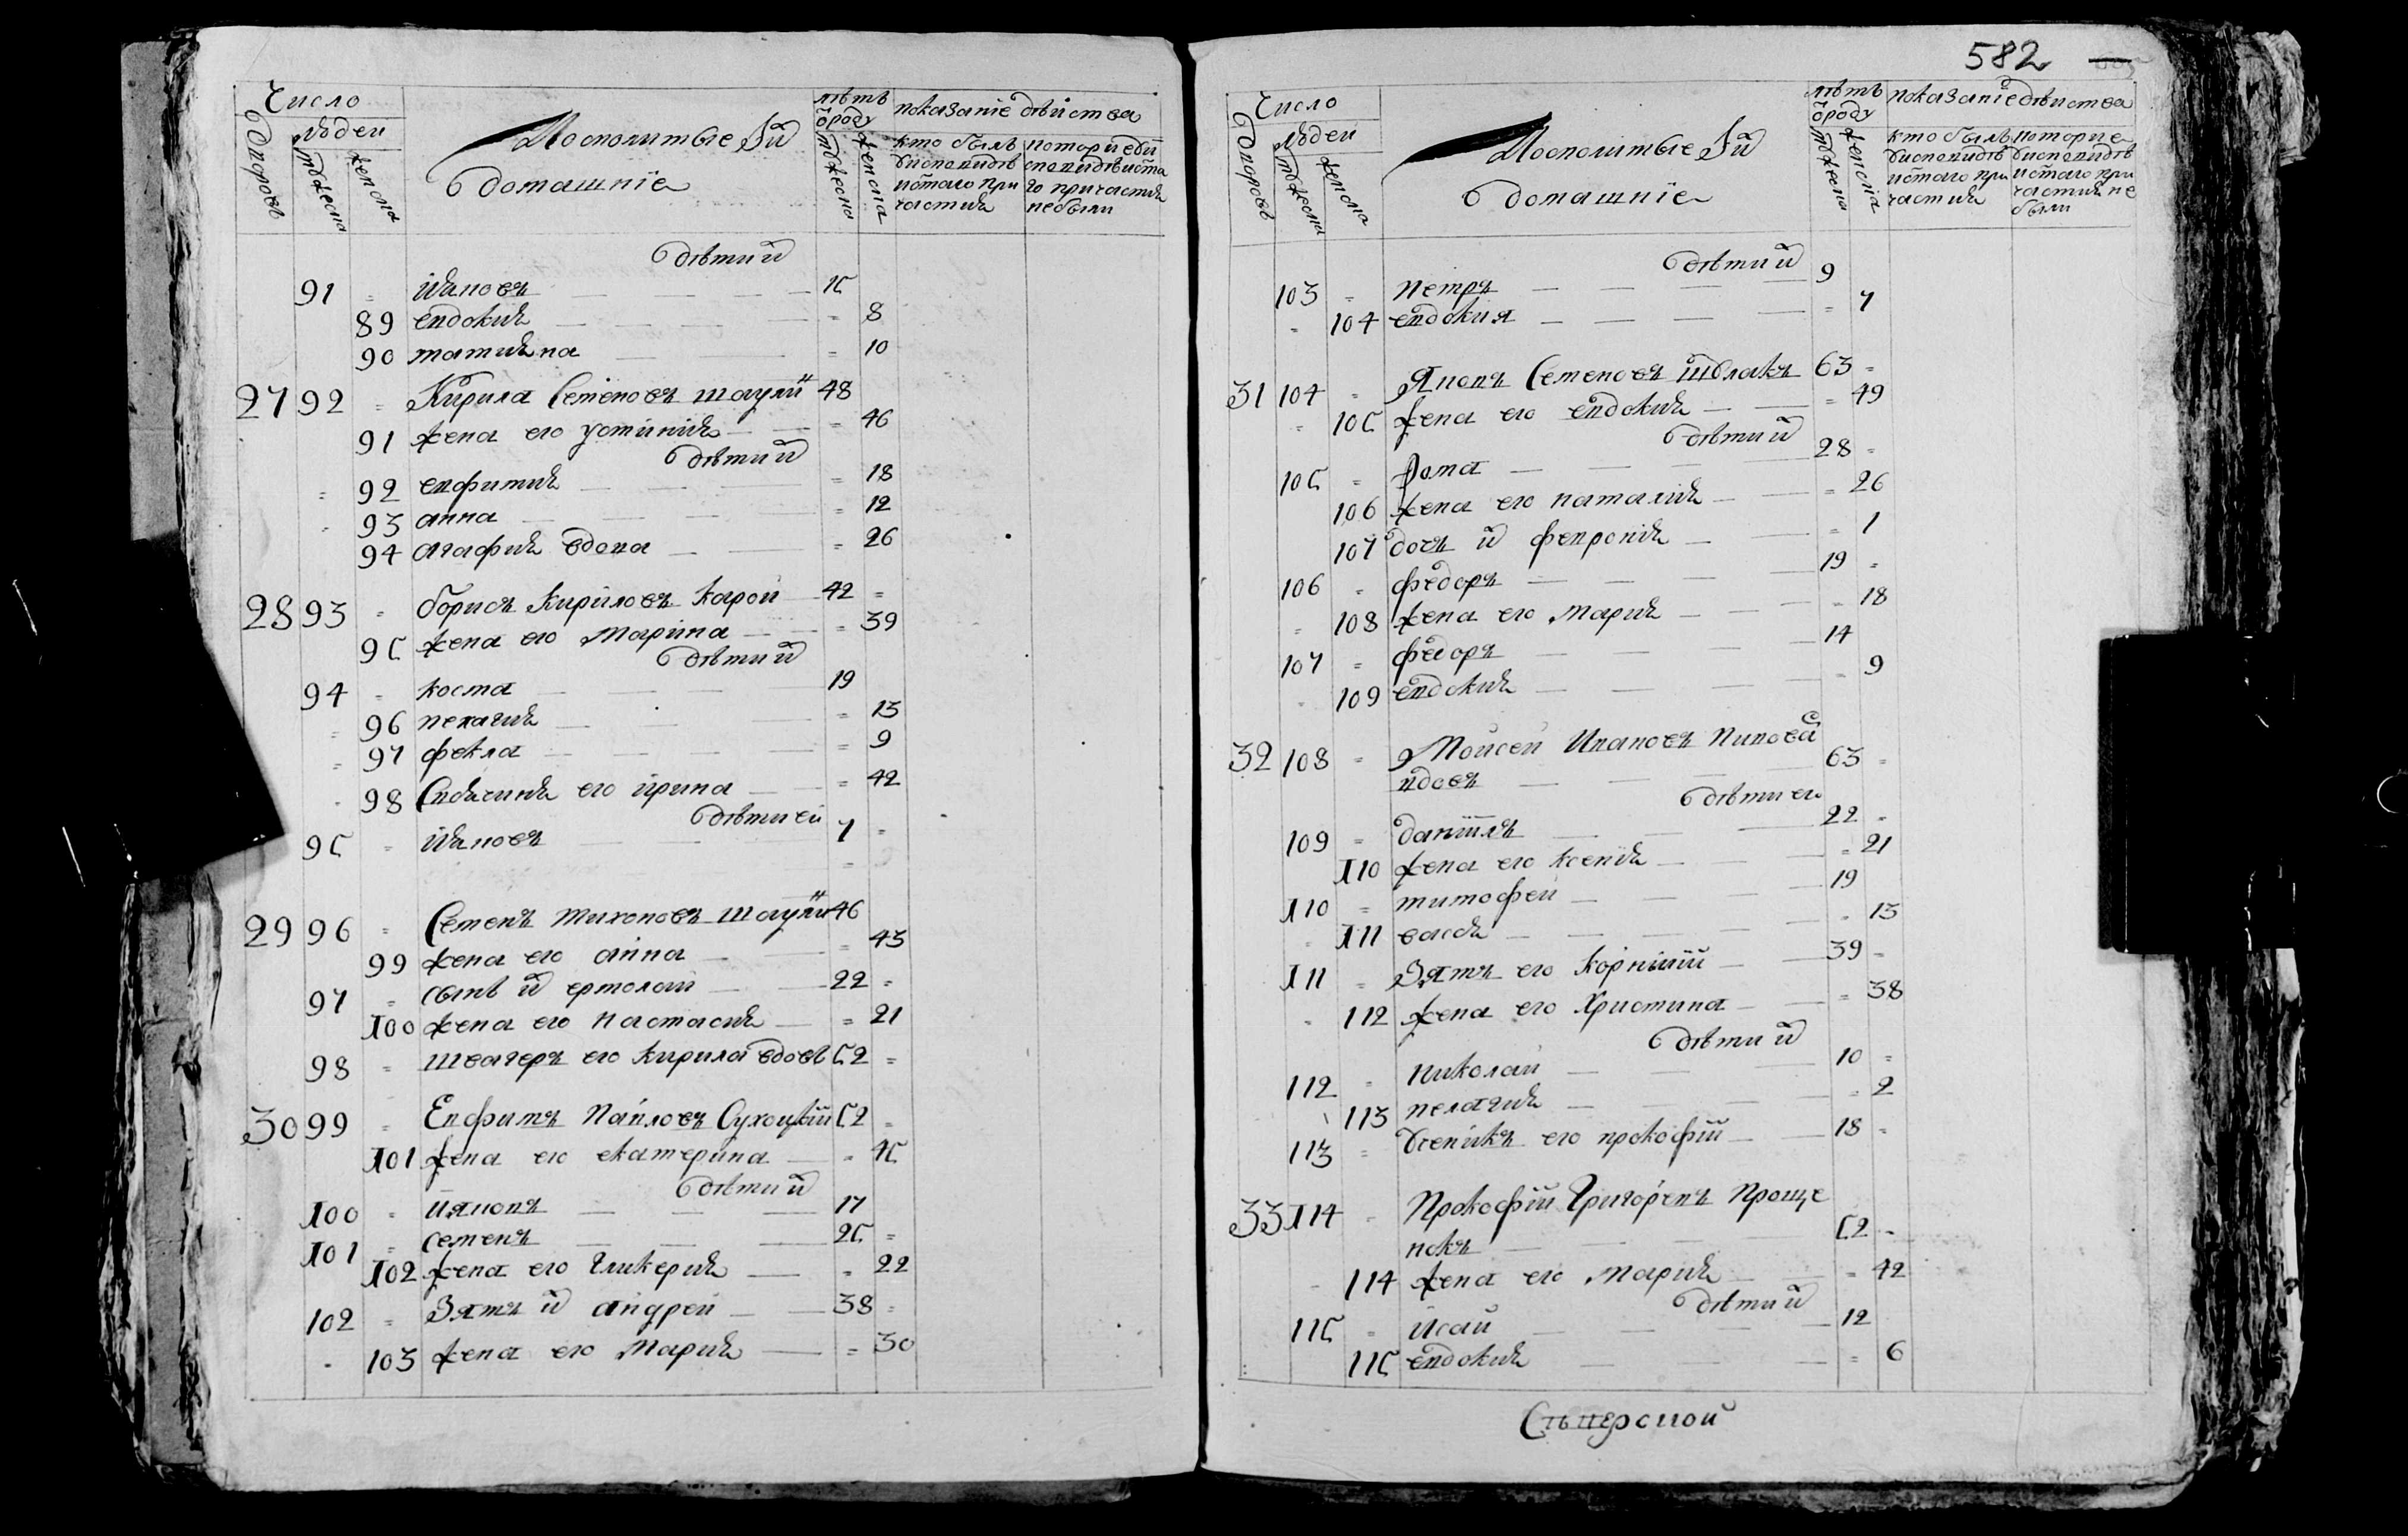 Число
Дворовъ
людей
мужеска
женска
Посполитые Ӥй
домашніе
лѣтъ
ѿроду
мужеска
женска
показаніе дѣйства
кто былъ
уисповидѣ
истаго при
частия
которие бы
споведѣиста
го причастия
небыли
дѣти ѿ
91 = ивановъ — 1С
89 евдокия — = 8
90 татияна — = 10
27 92 = Кирила Семеновъ шаули 48
91 жена его устиния — = 46
дѣти ѿ
= 92 евфимия — = 18
93 анна — = 12
94 агафия вдова — = 26
28 93 = борисъ кириловъ карои — 42 =
9С жена его марина — = 39
дѣти ѿ
94 = косма — 19
= 96 пелагия — = 13
= 97 фекла — = 9
98 Свѣстия его ирина — = 42
дѣти ей
9С = ивановъ — 7 =
29 96 = Семенъ тихоновъ шаули 46
99 жена его анна — = 43
97 = сынъ ѿ ермолай — 22 =
100 жена его настасия — = 21
98 = швагеръ его кирила вдовъ С2 =
30 99 = Евфимъ павловъ Сухоцкій С2 =
101 жена его екатерина — = 4С
дѣти ѿ
100 = ияковъ — 17
101 = семенъ — 2С =
102 жена его гликерия — = 22
102 = Зять ѿ андрей — 38 =
103 жена его мария — = 30
582
Число
Дворовъ
людей
мужеска
женска
Посполитые Ӥй
домашніе
лѣтъ
ѿроду
мужеска
женска
показаніе дѣиства
кто былъ
уисповидѣ
истаго при
частия
которие
уисповидѣ
истаго при
частия не
были
дѣти ѿ
103 = петръ — 9
= 104 евдокия — = 7
31 104 = Яковъ Семеновъ шулакъ 63 =
= 10С жена его евдокия — = 49
дѣти ѿ
10С = фома — 28 =
106 жена его наталия — = 26
107 дочъ ѿ феврония — = 1
106 = федоръ — 19 =
= 108 жена его мария — = 18
107 = федоръ — 14
109 евдокия — = 9
32 108 = Моисей Ивановъ
вдовъ — 63 =
дѣти его
109 = даниилъ — 22 =
110 жена его ксения — = 21
110 = тимофей — 19
= 111 васса — = 13
111 = Зять его корнилий — 39 =
112 жена его христина — = 38
дѣти ѿ
112 = николай — 10 =
113 пелагия — = 2
113 = ученикъ его прокофій — 18 =
33 114 = Прокофій Григоревъ Проще
нокъ — С2 =
114 жена его мария — = 42
дѣти ѿ
11С = исай — 12
11С евдокия — = 6